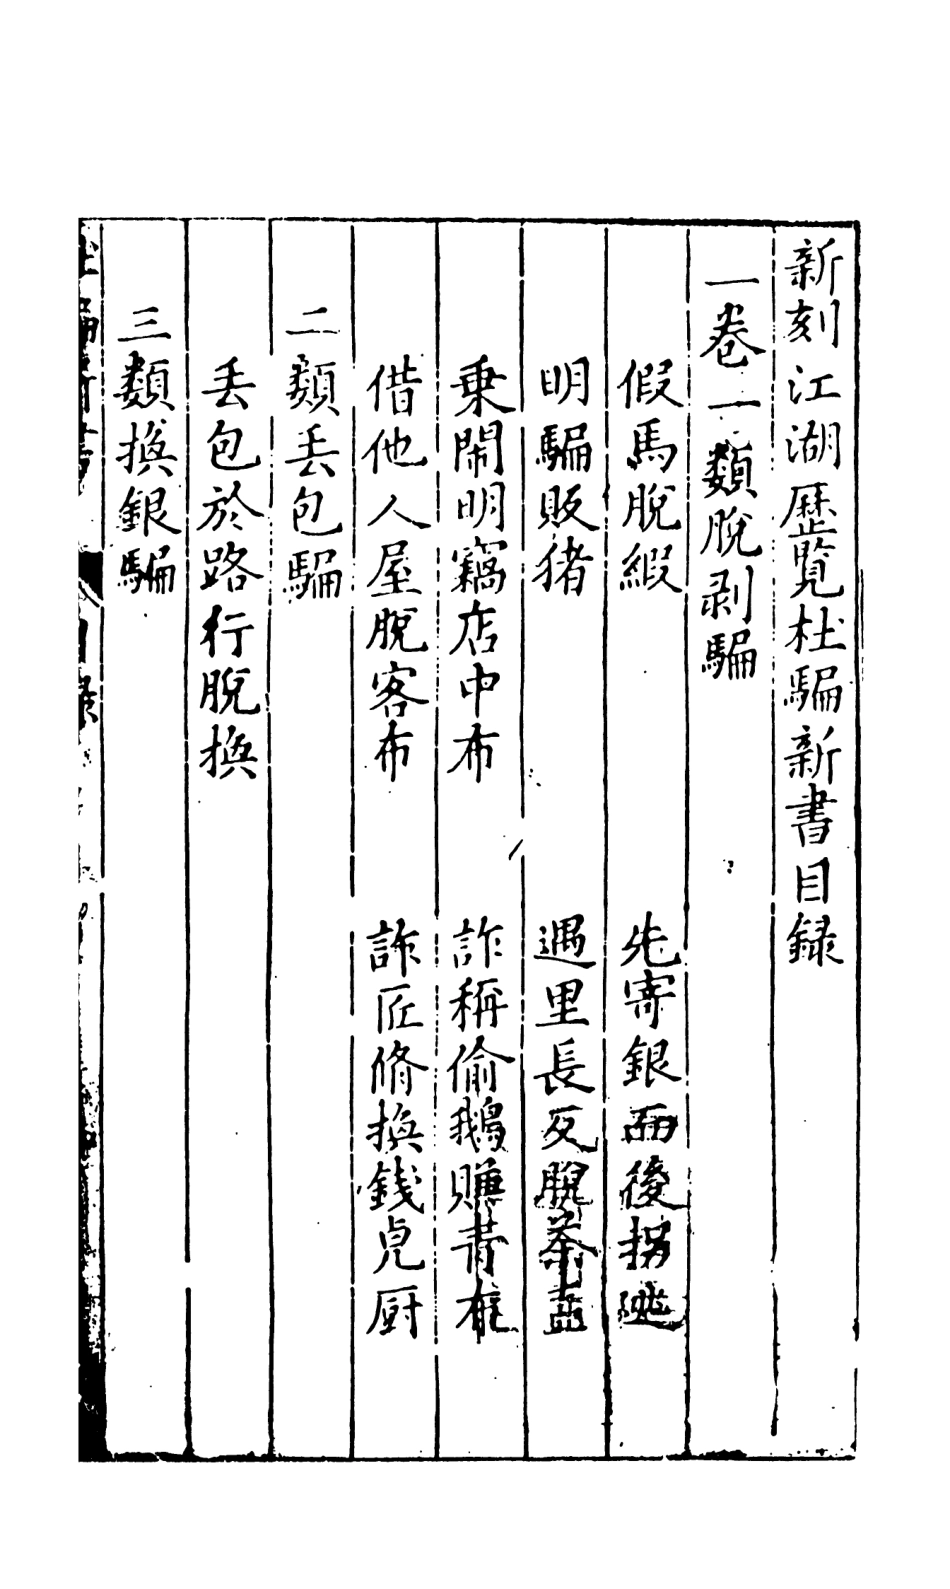 新刻江湖歷覽杜騙新書目録
一卷一類脫剥騙
假馬脫緞　先寄銀而後拐逃
明騙販猪　遇里長反脫茶壺
乗鬧明竊店中布　詐稱偷鵝賺青布
借他人屋脫客布　詐匠脩換錢卓厨
二類丢包騙
丢包於路行脫換
三類換銀騙
目録